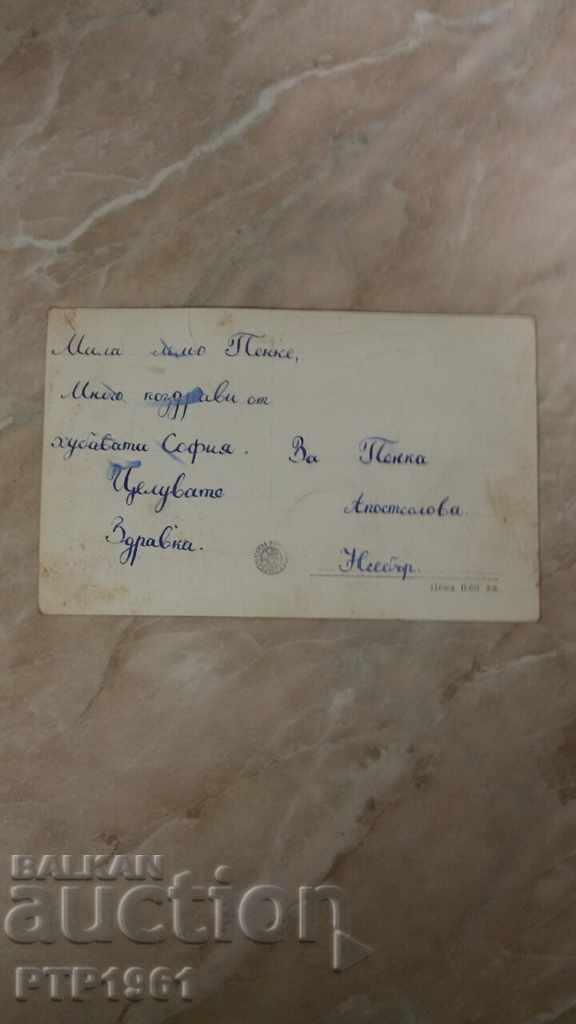 Мила лельо Пенке,
Много поздрави от
хубавата София.
Целувате
Здравка.
За Пенка
Апостолова
Несебър.
Цена 0.60 лв.
BALKAN
auction
PTP1961